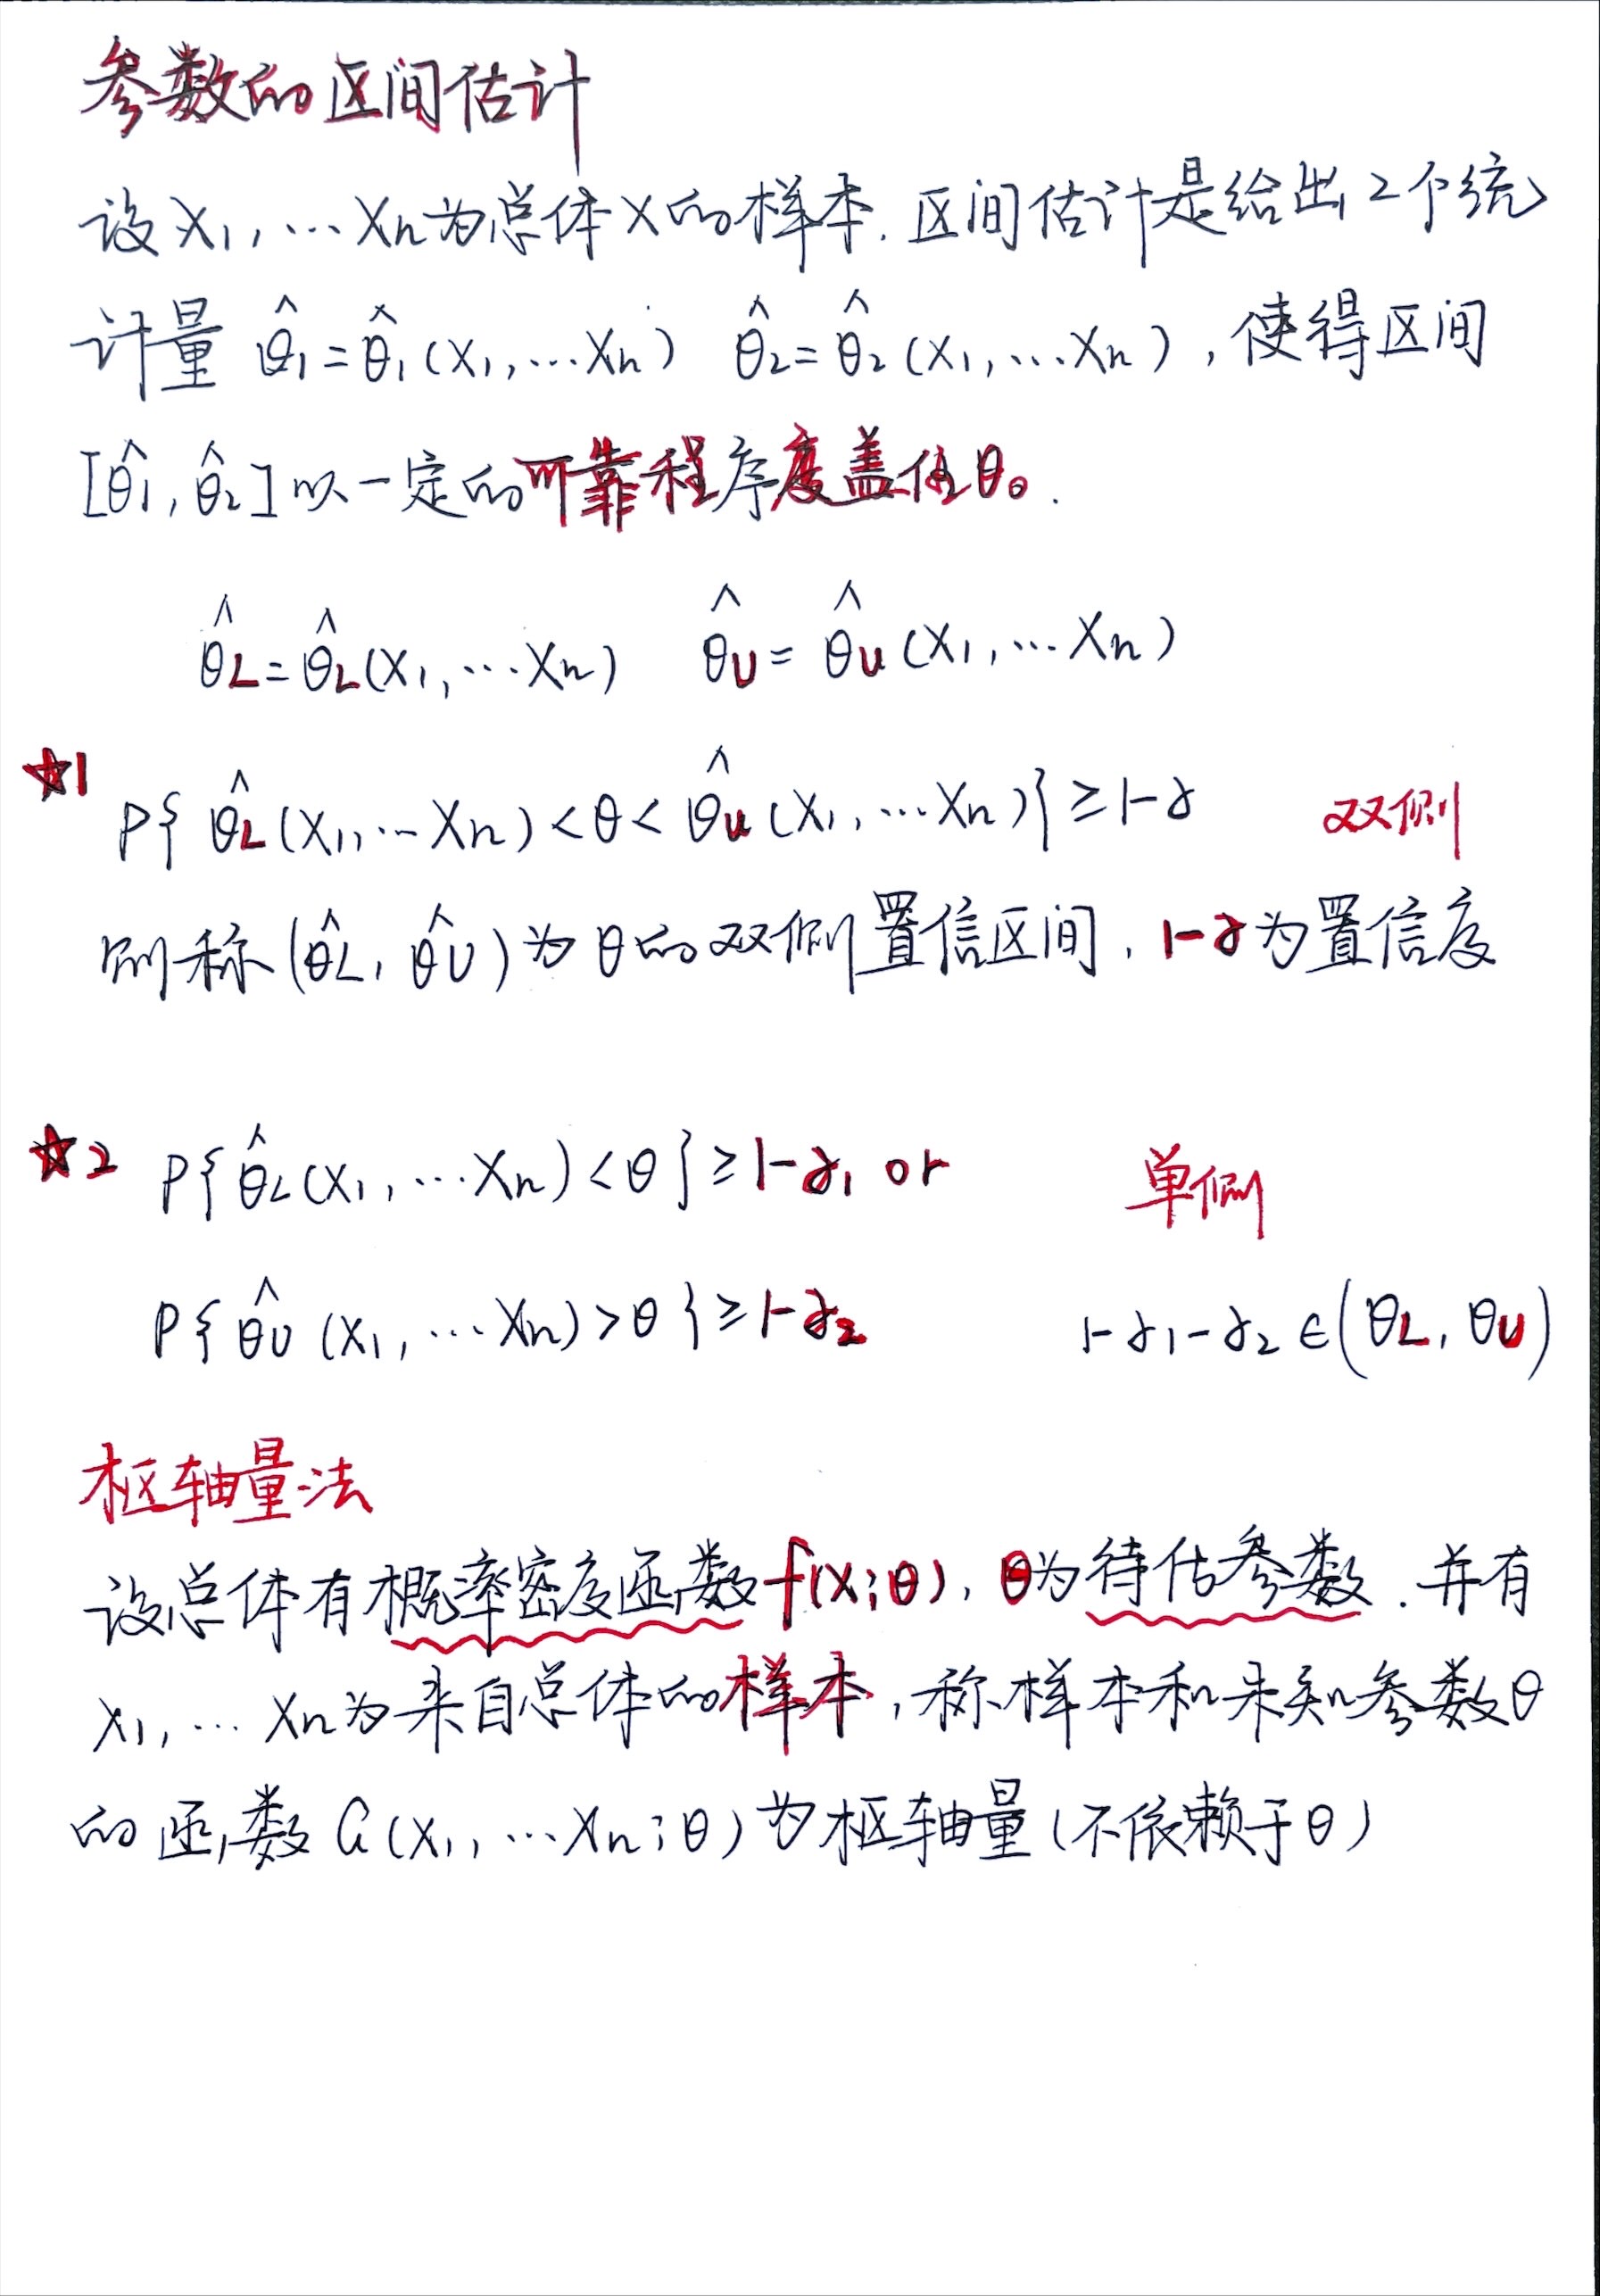 参数的区间估计
设X1,…Xn为总体X的样本.区间估计是给出2个统
计量 θ̂1=θ̂1(X1,…Xn) θ̂2=θ̂2(X1,…Xn),使得区间
[θ̂1,θ̂2]以一定的可靠程序度盖住θ。.
θ̂L=θ̂L(X1,…Xn) θ̂U=θ̂U(X1,…Xn)
☆1
P{θ̂L(X1,…Xn)<θ<θ̂U(X1,…Xn)}≥1-α 双侧
则称(θ̂L,θ̂U)为θ的双侧置信区间,1-α为置信度
☆2 P{θ̂L(X1,…Xn)<θ}≥1-α1 or 单侧
P{θ̂U(X1,…Xn)>θ}≥1-α2 1-α1-α2∈(θL,θU)
枢轴量法
设总体有概率密度函数f(X;θ),θ为待估参数.并有
X1,…Xn为来自总体的样本,称样本和未知参数θ
的函数G(X1,…Xn;θ)为枢轴量(不依赖于θ)